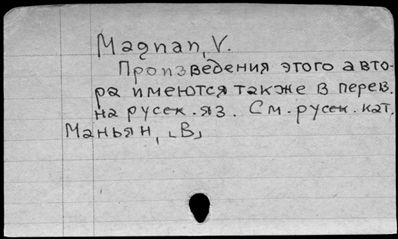 Magnan, V.
Произведения этого авто-
ра имеются также в перев.
на русск. яз. См. русск. кат.
Маньян, [В]